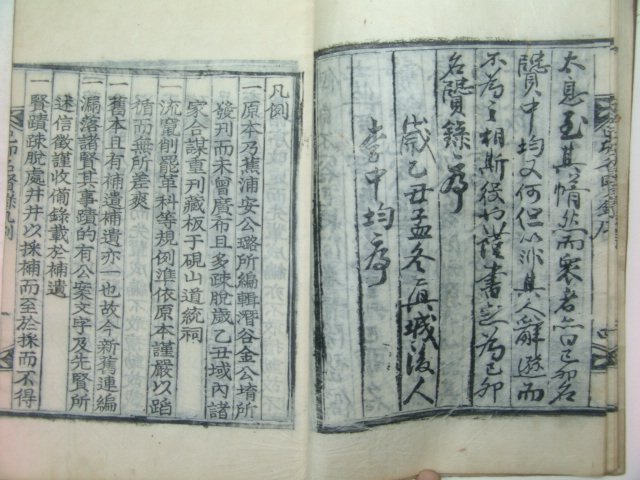 太息至其惰然而衆者無日己卯名
賢中均又何但以非其人辭遜而
不為之相斯役乃謹書之為己卯
名賢錄序
歲乙丑孟冬直城後人
李中均序
凡例
一原本乃蕉浦安公璐所編輯潛谷金公堉所
發刊而未曾廣布且多疎脫歲乙丑域內諸
家合謀重刊藏板于硯山道統祠
一流竄削罷革科等規例準依原本謹嚴以蹈
循而無所差爽
一舊本且有補遺補遺亦一也故今新舊連編
一漏落諸賢其事蹟的有公案文字及先賢所
述信徵謹收備錄載於補遺
一賢蹟疎脫處井井以採補而至於採而不得
己卯名賢錄凡例